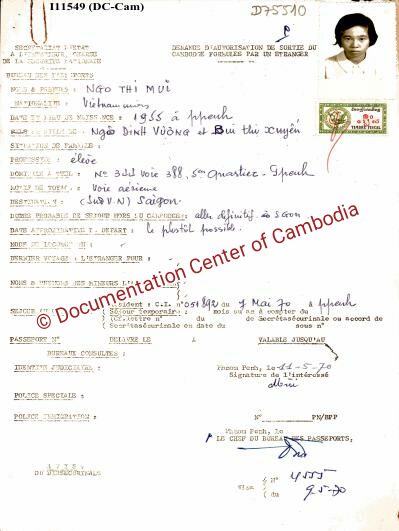 I11549 (DC-Cam)
D75510
SECRETARIAT D'ETAT
A L'INTERIEUR, CHARGE
DE LA SECURITE NATIONALE
BUREAU DES PASSEPORTS
DEMANDE D'AUTORISATION DE SORTIE DU
CAMBODGE FORMULEE PAR UN ETRANGER
NOMS & PRENOMS : NGO THI MUI
NATIONALITE : Vietnamienne
DATE ET LIEU DE NAISSANCE : 1955 à ppenh
FILS OU FILLE : Ngô Dinh Vuong et Bui thi Xuyên
SITUATION DE FAMILLE :
PROFESSION : élève
DOMICILE ACTUEL : N° 3 voie 388, 5è Quartier - Ppenh
MOTIF DE Voie aérienne
DESTINATION : (Sud V.N) Saigon
DUREE PROBABLE DE SEJOUR HORS DU CAMBODGE : aller définitif à SGon
DATE APPROXIMATIVE DE DEPART : le plutôt possible.
MODE DE LOCOMOTION :
DERNIER VOYAGE A L'ETRANGER POUR :
NOMS & PRENOMS DES MINEURS
© Documentation Center of Cambodia
Résident : C.I. N° 051892 du 7 Mai 70 à ppenh
SEJOUR Séjour temporaire : mois ou as à compter du
N° du de Secrétaséurinale ou accord de
Secrétaséurinale en date du sous n°
PASSEPORT N° DELIVRE LE A VALABLE JUSQU'AU
BUREAUX CONSULTES :
IDENTITE JUDICIAIRE :
Phnom Penh, le 11-5-70
Signature de l'intéressé
Mui
POLICE SPECIALE :
POLICE IMMIGRATION :
N° PN/BPP
Phnom Penh, le
P LE CHEF DU BUREAU DES PASSEPORTS,
AVIS
DU SECSEURINALE
( N° 4555
Visa
( du 9.5-70